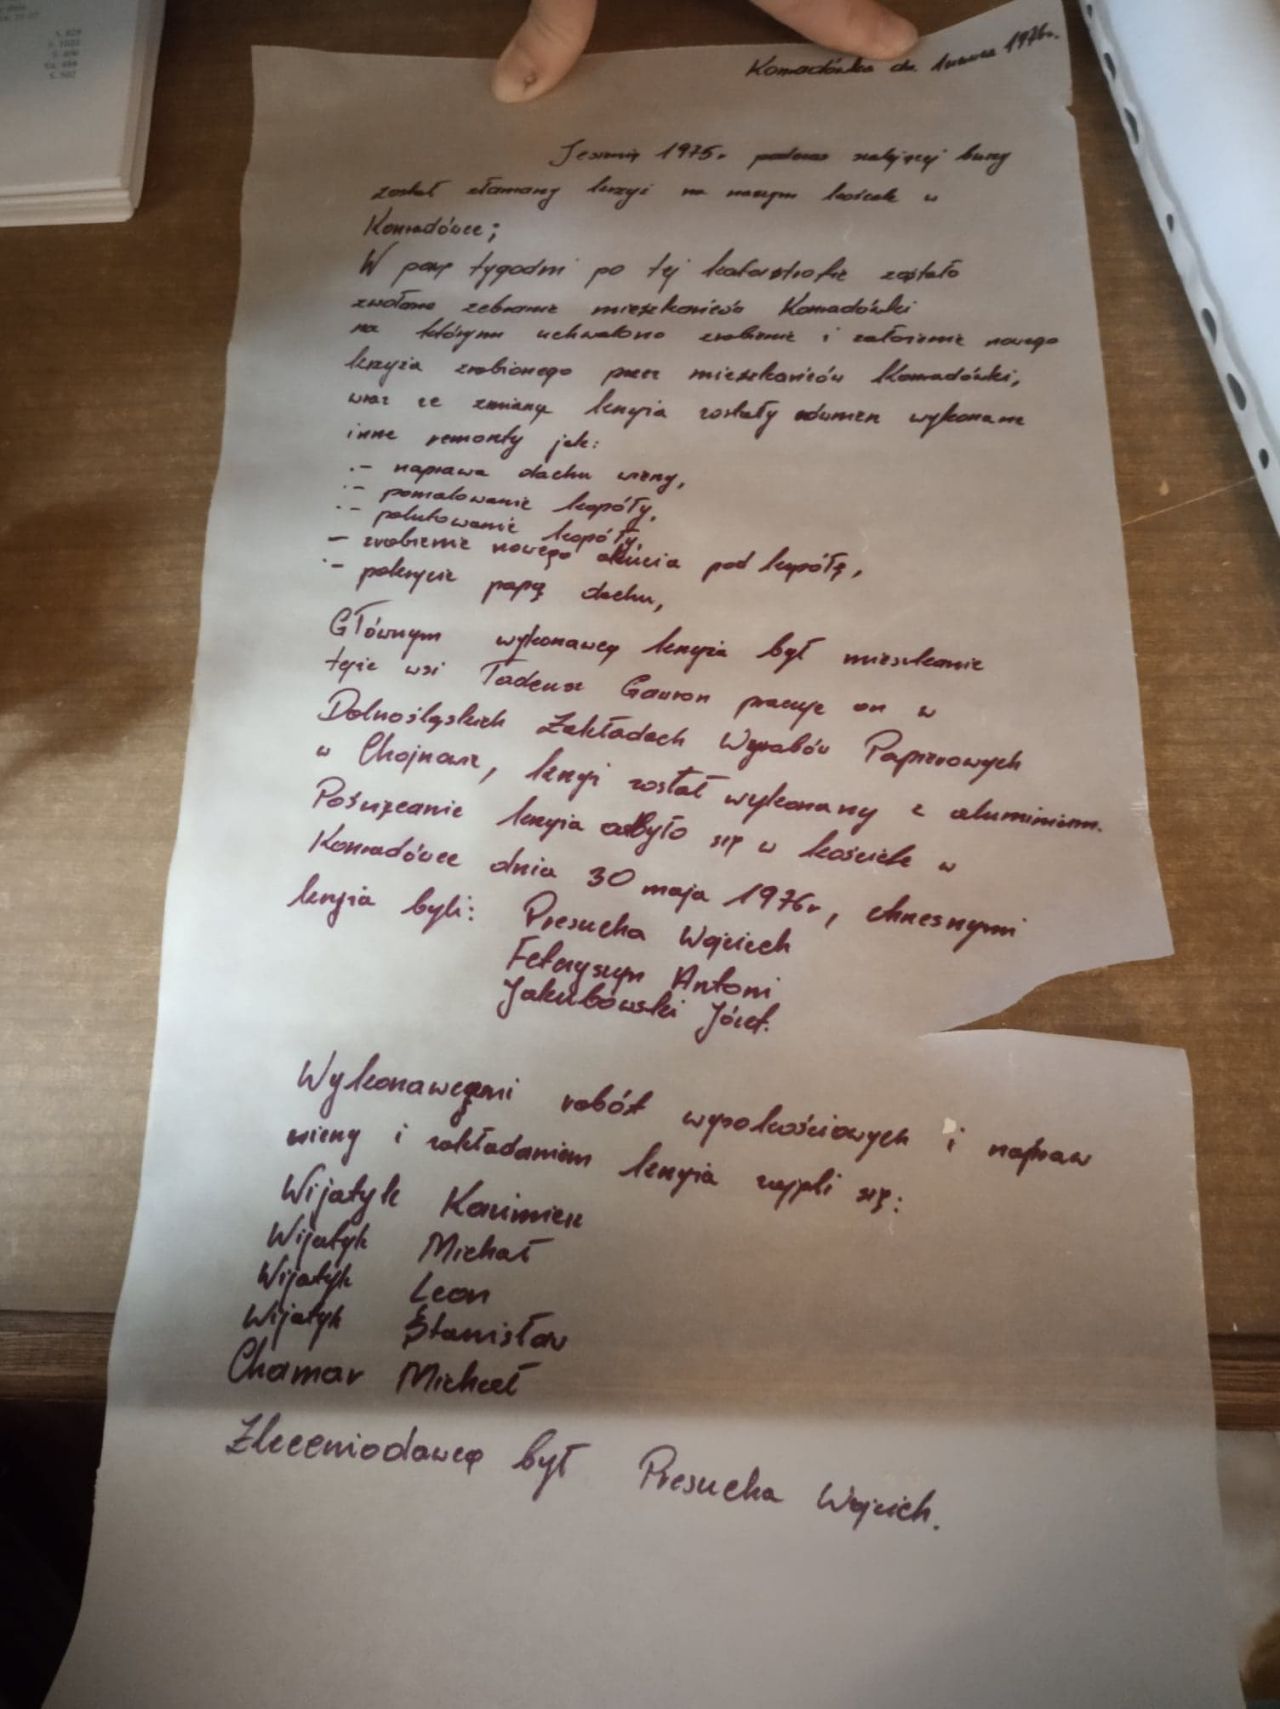 Konradówka dn. 1976r.
Jesienią 1975r podczas szalejącej burzy
został złamany krzyż na naszym kościele w
Konradówce;
W parę tygodni po tej katastrofie zostało
zwołane zebranie mieszkańców Konradówki
na którym uchwalono zrobienie i założenie nowego
krzyża zrobionego przez mieszkańców Konradówki,
wraz ze zmianą krzyża zostały również wykonane
inne remonty jak:
- naprawa dachu wieży,
- pomalowanie kopóły,
- polutowanie kopóły,
- zrobienie nowego okucia pod kopółę,
- pokrycie papą dachu,
Głównym wykonawcą krzyża był mieszkaniec
tejże wsi Tadeusz Gawron pracuje on w
Dolnośląskich Zakładach Wyrobów Papierowych
w Chojnowie, krzyż został wykonany z aluminium.
Poświęcenie krzyża odbyło się w kościele w
Konradówce dnia 30 maja 1976r, chrzesnymi
krzyża byli: Presucha Wojciech
Antoni
Jakubowski Józef.
Wykonawcami robót wysokościowych i napraw
wieży i zakładaniem krzyża zajęli się:
Wijatyk Kazimierz
Wijatyk Michał
Wijatyk Leon
Wijatyk Stanisław
Chamar Michał
Zleceniodawcą był Presucha Wojciech.